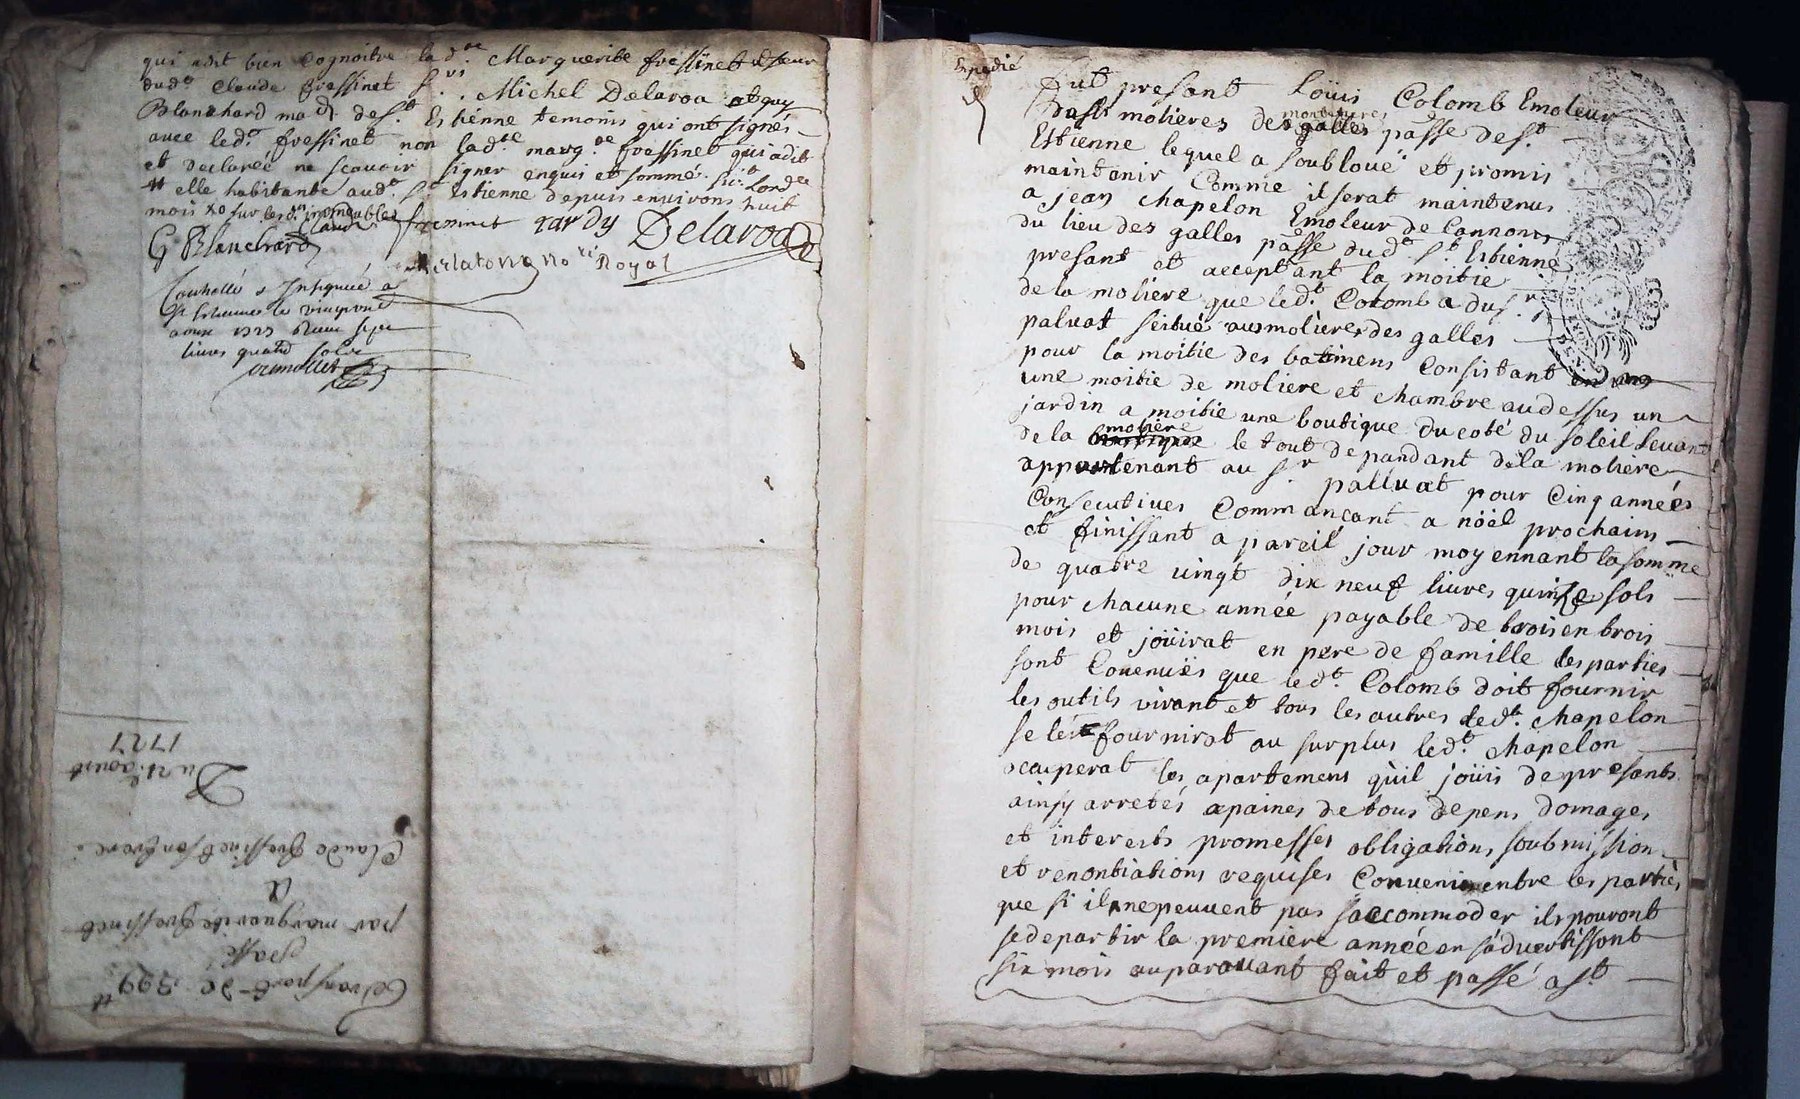 qui adit bien Cognoitre lad.te Marguerite fressinet et sieur
dud.t Claude fressinet s.rs Michel Delaroa et guy
Blanchard ma.d de s.t Estienne temoins qui ont signés
avec led.t fressinet non lad.te marg.te fressinet qui a dit
et declareé ne scavoir signer enquis et sommeé
elle habitante aud.t S.t Estienne depuis environs huit
mois sur les d.ts immeubles
G Blanchard Claude fressinet tardy Delaroa
no.re Royal
Conthollé & Insignué a
St Estienne le
aoust 1727
livres quatre sols
Du 21.e aoust
1727
Transport de 399.tt
passé
par marguerite fressinet
a
Claude fressinet son frere
Expedié
fut presant Loüis Colomb Emoleur
molieres des galles passe de s.t
montagnes
Estienne lequel a soubloué et promis
maintenir Comme il serat maintenus
a jean chapelon Emoleur de Cannons
du lieu des galles passe dud.t s.t Estienne
presant et acceptant la moitie
de la moliere que led.t Colomb a du s.r
paluat scitué aus molieres des galles
pour la moitie des batimens Consistant en
une moitie de moliere et chambre audessus un
jardin a moitie une boutique du coté du soleil Levant
de la moliere le tout depandant dela moliere
appartenant au s.r palluat pour Cinq années
Consecutives Commançant a nöel prochain
et finissant a pareil jour moyennant la somme
de quatre vingt dix neuf livres quinse sols
pour chacune annéé payable de trois en trois
mois et joüirat en pere de famille les parties
sont Convenuës que led.t Colomb doit fournir
les outils virant et tous les autres led.t chapelon
se les fournirat au surplus led.t chapelon
ocuperat les apartemens qu'il joüis de presants
ainsy arretés apaines de tous depens domages
et interests promesses obligations soubmission
et renontiations requises Convenu entre les parties
que si il ne peuvent pas saccommoder ils pouront
se departir la premiere annéé en s'advertissont
six mois auparavant fait et passé a s.t